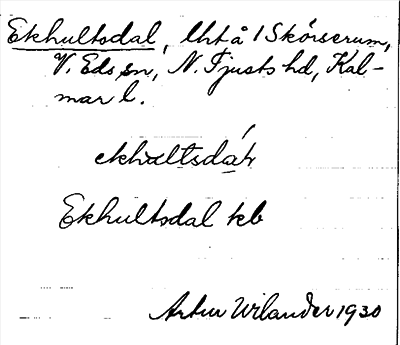 Ekhultsdal, lht å 1 Skörserum,
V. Eds sn, N. Tjusts hd, Kal-
mar l.
ekhultsdáḷ
Ekhultsdal kb
Artur Wilander 1930